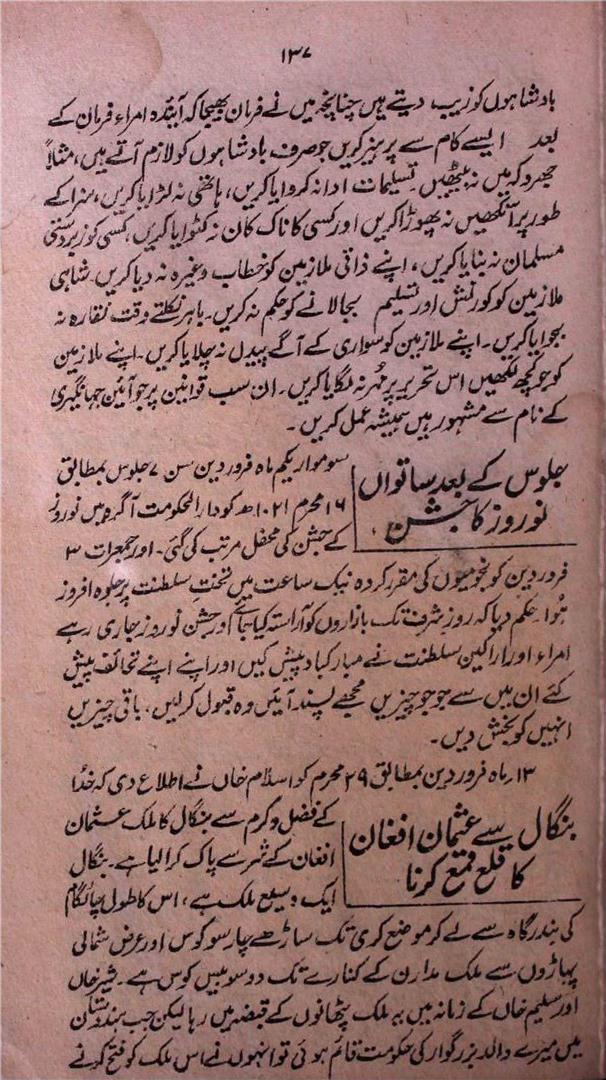 ۱۳۷
بادشاہوں کو زیب دیتے ہیں چنانچہ میں نے فرمان بھیجا کہ آیندہ امراء فرمان کے
بعد ایسے کام سے پرہیز کریں جو صرف بادشاہوں کو لازم آتے ہیں، مثلاً
جھروکہ میں نہ بیٹھیں تسلیمات ادا نہ کروایا کریں، ہاتھی نہ لڑایا کریں، سزا کے
طور پر آنکھیں نہ پھوڑا کریں اور کسی کا ناک کان نہ کٹوایا کریں، کسی کو زبردستی
مسلمان نہ بنایا کریں، اپنے ذاتی ملازمین کو خطاب وغیرہ نہ دیا کریں۔ شاہی
ملازمین کو کورنش اور تسلیم بجا لانے کو حکم نہ کریں۔ باہر نکلتے وقت نقارہ نہ
بجوایا کریں۔ اپنے ملازمین کو سواری کے آگے پیدل نہ چلایا کریں۔ اپنے ملازمین
کو جو کچھ لکھیں اس تحریر پر مُہر نہ لگایا کریں۔ ان سب قوانین پر جو آئین جہانگیری
کے نام سے مشہور ہیں ہمیشہ عمل کریں۔
جلوس کے بعد ساتواں
نو روز کا جشن
سوموار یکم ماہ فروردین سن ۷ جلوس بمطابق
۱۶ محرم ۱۰۲۱ھ کو دارالحکومت آگرہ میں نوروز
کے جشن کی محفل مرتب کی گئی۔ اور جمعرات ۳
فروردین کو نجومیوں کی مقرر کردہ نیک ساعت میں تخت سلطنت پر جلوہ افروز
ہُوا۔ حکم دیا کہ روز شرف تک بازاروں کو آراستہ کیا جائے اور جشن نوروز جاری رہے
امراء اور اراکین سلطنت نے مبارکباد پیش کیں اور اپنے اپنے تحائف پیش
کئے ان میں سے جو جو چیزیں مجھے پسند آئیں وہ قبول کر لیں، باقی چیزیں
انہیں کو بخش دیں۔
۱۳ ماہ فروردین بمطابق ۲۹ محرم کو اسلام خاں نے اطلاع دی کہ خدا
بنگال سے عثمان افغان
کا قلع قمع کرنا
کے فضل و کرم سے بنگال کا ملک عثمان
افغان کے شر سے پاک کرا لیا ہے۔ بنگال
ایک وسیع ملک ہے، اس کا طول چاٹگام
کی بندرگاہ سے لے کر موضع کری تک ساڑھے چار سو کوس اور عرض شمالی
پہاڑوں سے ملک مدارن کے کنارے تک دو سو بیس کوس ہے۔ شیر خاں
اور سلیم خاں کے زمانہ میں یہ ملک پٹھانوں کے قبضہ میں رہا لیکن جب ہندوستان
میں میرے والد بزرگوار کی حکومت قائم ہوئی تو انہوں نے اس ملک کو فتح کرنے